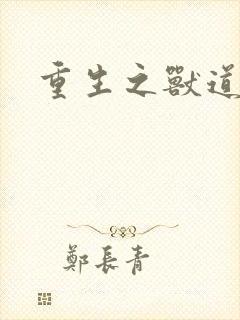 重生之獸道
鄭長青